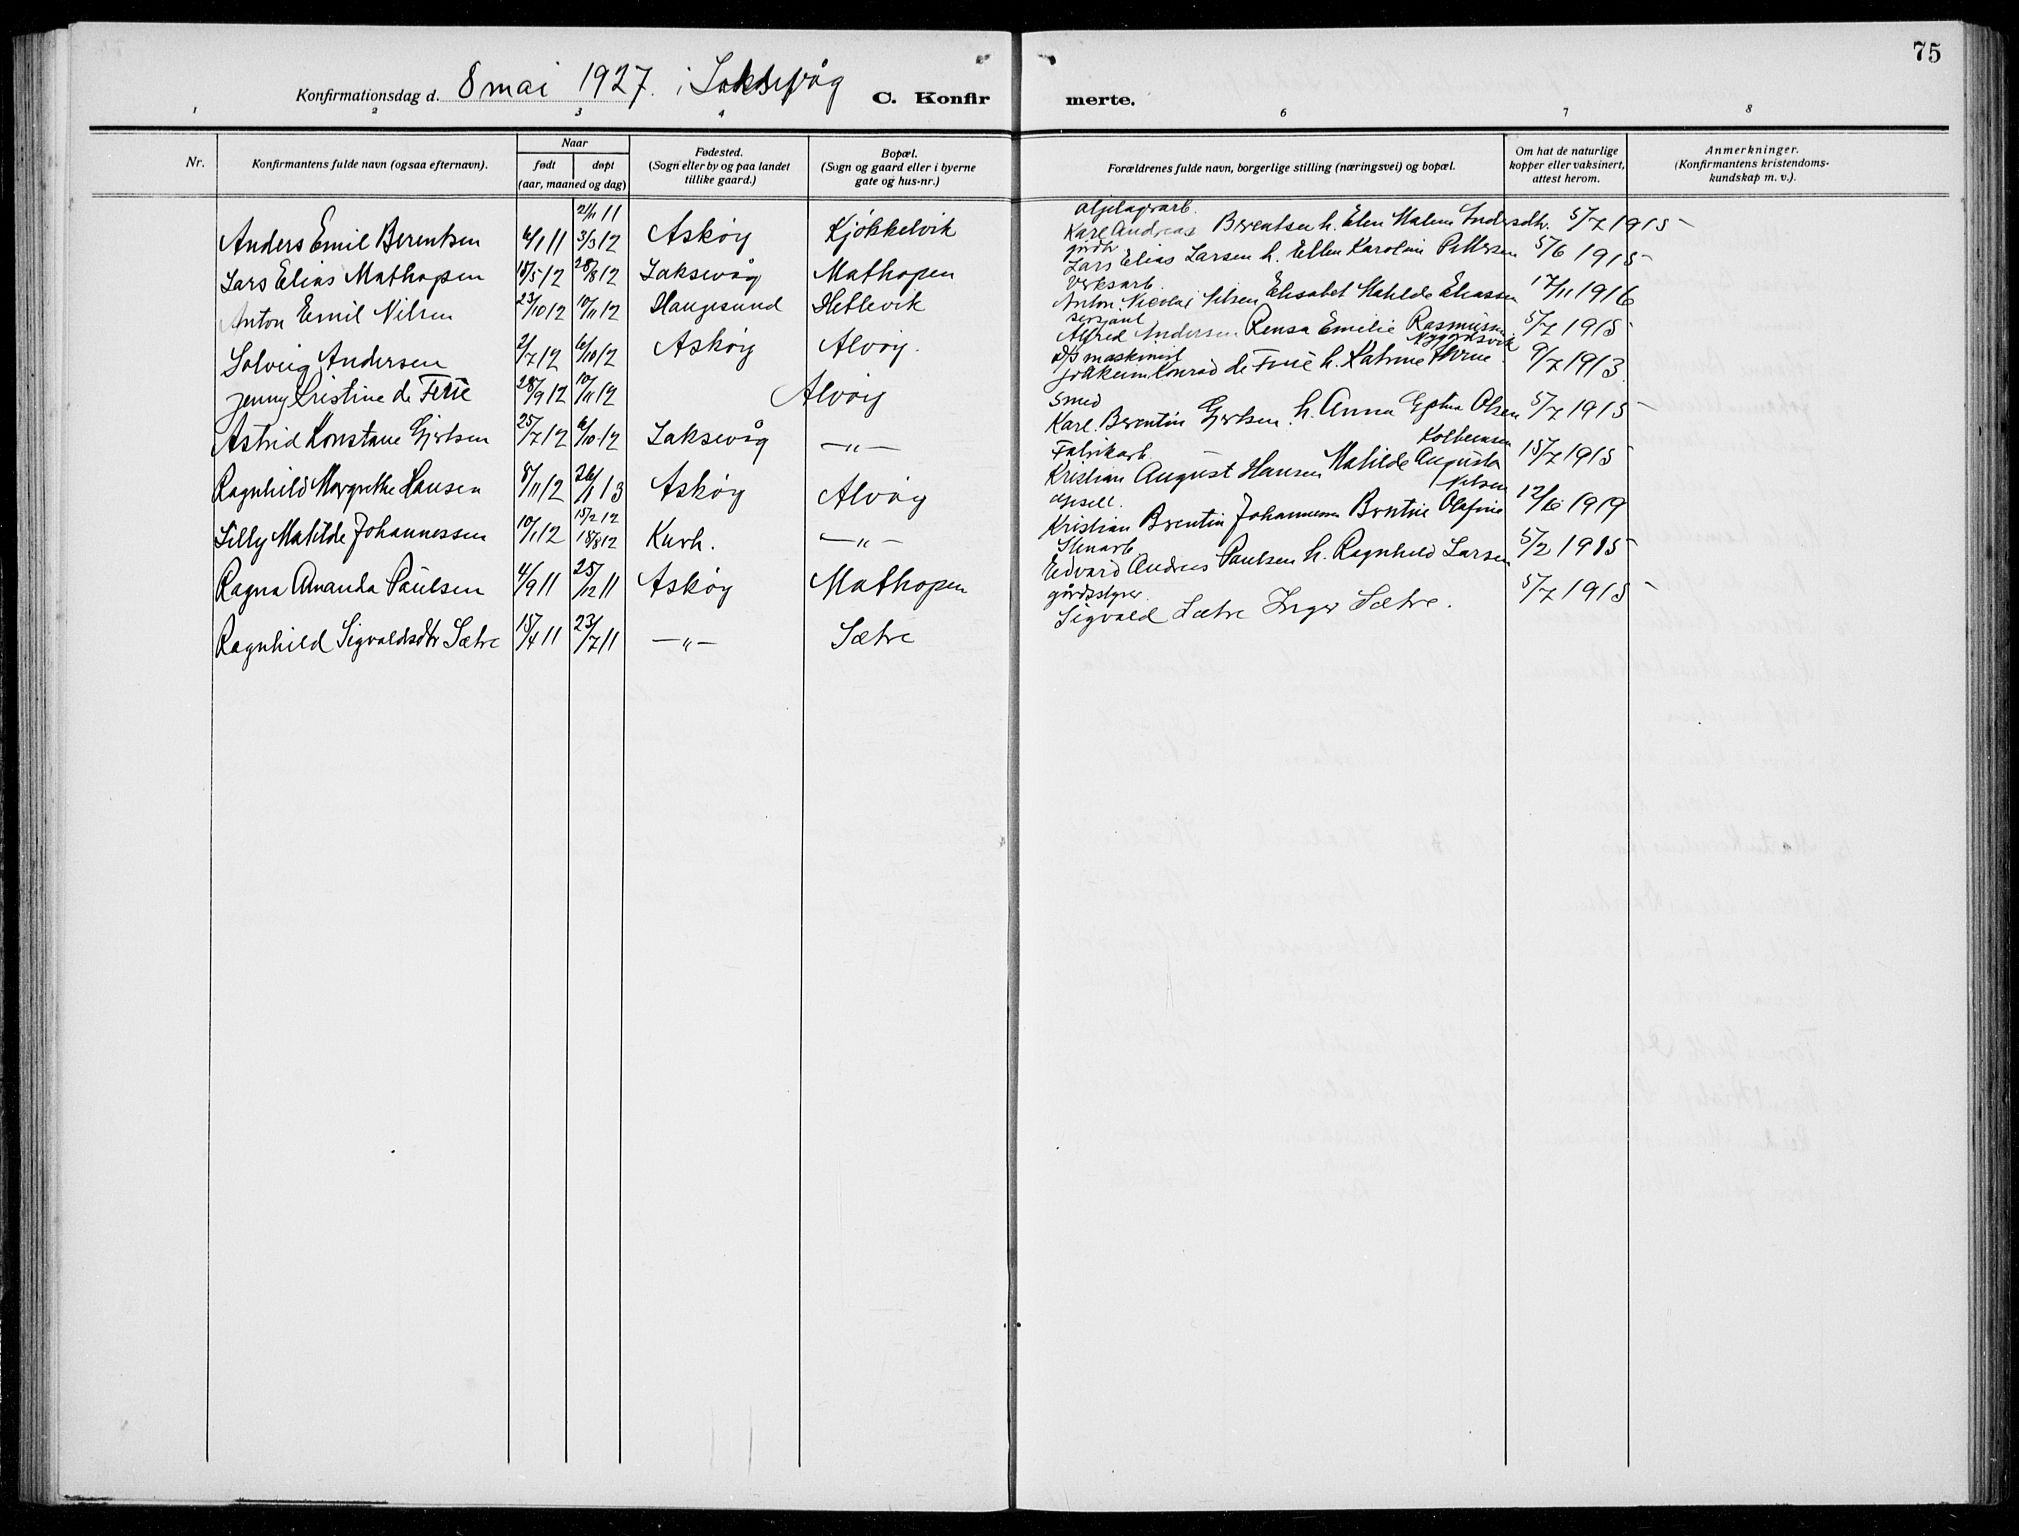 75
Konfirmationsdag d. 8 mai 1927. i Laksevåg C. Konfir merte.
1 2 3 4 6 7 8
Nr. Konfirmantens fulde navn (ogsaa efternavn). Naar født døpt (aar, maaned og dag) Fødested. (Sogn eller by og paa landet tillike gaard.) Bopæl. (Sogn og gaard eller i byerne gate og hus-nr.) Forældrenes fulde navn, borgerlige stilling (næringsvei) og bopæl. Om hat de naturlige kopper eller vaksinert, attest herom. Anmerkninger. (Konfirmantens kristendoms- kundskap m. v.).
Anders Emil Berentsen 6/1 11 3/3 12 Askøy Kjøkkelvik Karl Andreas Berentsen h. Elen Malene 5/7 1915
Lars Elias Mathopen 15/5 12 25/8 12 Laksevåg Mathopen Lars Elias Larsen h. Ellen Karoline Pettersen 5/6 1915
Anton Emil Nilsen 23/10 12 10/11 12 Haugesund Hetlevik Verksarb. Anton Nicolai Nilsen Elisabet Matilde Eliassen 17/11 1916
Solveig Andersen 2/7 12 6/10 12 Askøy Alvøy. serjant Alfred Andersen Rensa Emilie Rasmussen 5/7 1915
Jenny Kristine de Feiie 28/9 12 10/11 12 Alvøy D/S maskinist Joakeim Konrad de h. Katrine 9/7 1913.
Astrid Konstane Gjertsen 25/7 12 6/10-12 Laksevåg —„— Smed Karl Berentin Gjertsen. h. Anna Olsen 5/7 1915
Ragnhild Margrethe Hansen 8/11 12 26/1 13 Askøy Alvøy Fabrikarb. Kristian August Hansen Matilde Augusta Kolbensen 15/7 1915
Lilly Matilde Johannessen 10/1 12 15/2 12 18/8 12 Korh. —„— Kristian Berentin Johannessen Berntine Olafine Nilsen 12/6 1919
Ragna Amanda Paulsen 4/9 11 25/12 11 Askøy Mathopen Stenarb. Edvard Andreas Paulsen h. Ragnhild Larsen 5/2 1915
Ragnhild Sigvaldsdtr Sætre 15/4 11 23/7 11 —„— Sætre gårdsstyrer. Sigvald Sætre Inger Sætre. 5/7 1915